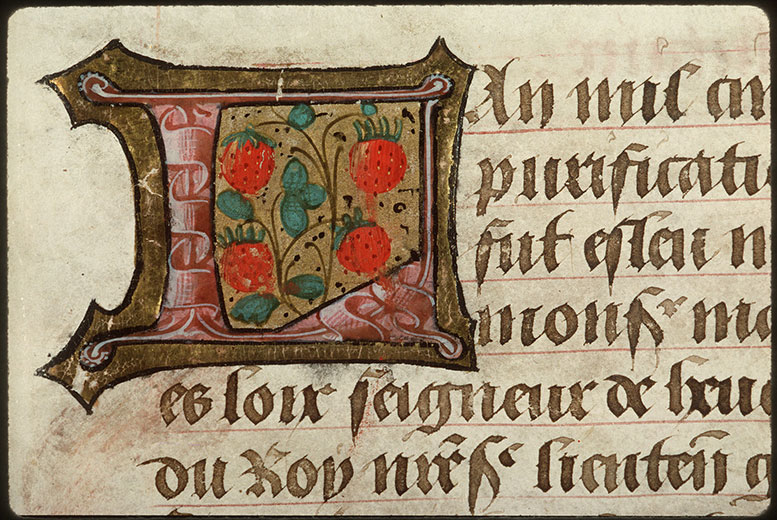 LAn mil cin
purificati
fut esleu n
mons.r ma
es loix seigneur de beuu
du Roy nr̃e s.r lieuteñ g